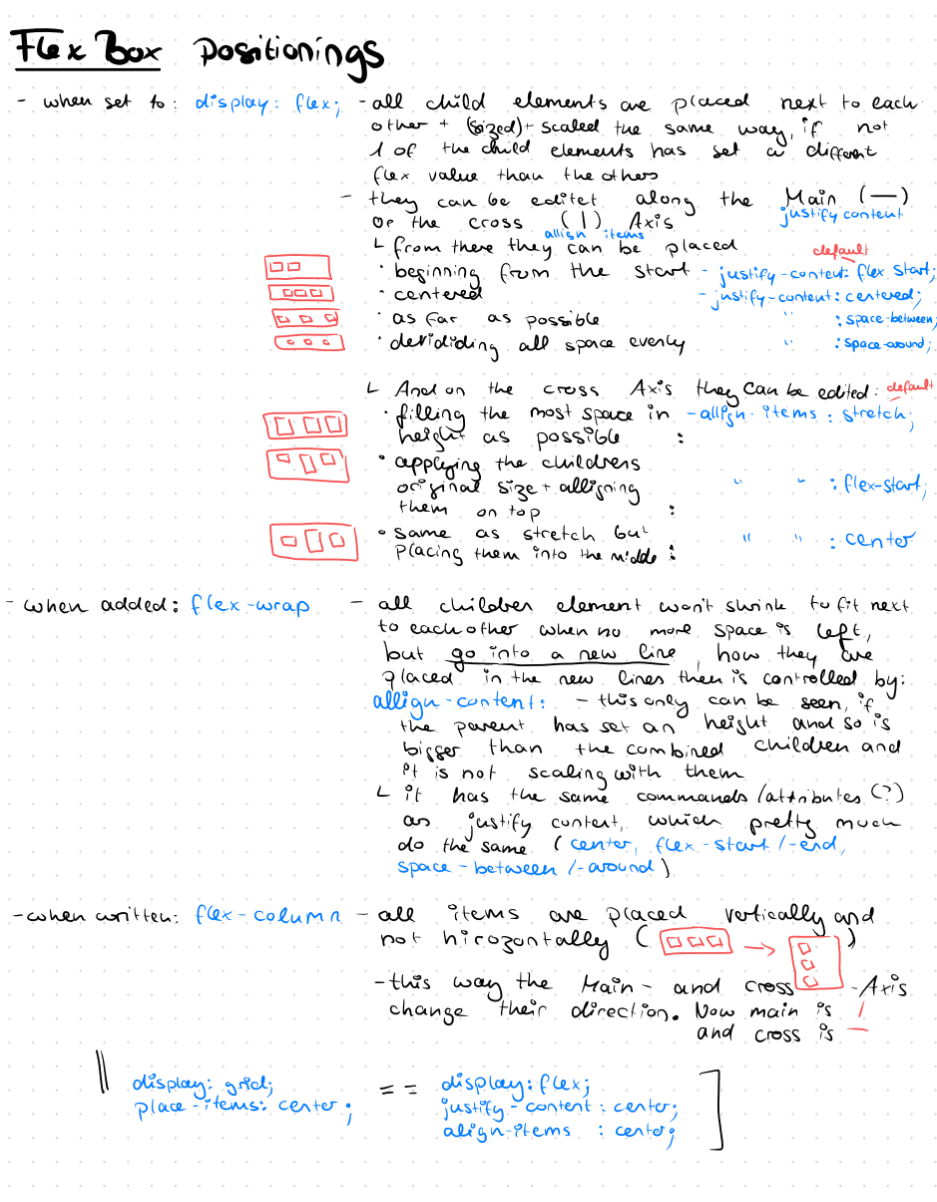 Flex Box Positionings
- when set to: display: flex; - all child elements are placed next to each
other + (sized) + scaled the same way, if not
1 of the child elements has set a different
flex value than the others
- they can be editet along the Main (—)
justify content
or the cross (|) Axis
allign items
└ from there they can be placed
default
· beginning from the start - justify-content: flex start;
· centered - justify-content: centered;
· as far as possible " : space-between;
· devididing all space evenly " : space-around;
└ And on the cross Axis they can be edited: default
· filling the most space in - allign-items : stretch;
height as possible :
· applying the childrens
original size + alligning " " : flex-start;
them on top :
· same as stretch but " " : center
placing them into the middle :
- when added: flex-wrap - all children element won't shrink to fit next
to each other when no more space is left,
but go into a new line, how they are
placed in the new lines then is controlled by:
allign-content: - this only can be seen, if
the parent has set an height and so is
bigger than the combined children and
it is not scaling with them
└ it has the same commands/attributes (?)
as justify content, which pretty much
do the same (center, flex-start/-end,
space-between/-around)
- when written: flex-column - all items are placed vertically and
not hirozontally ( → )
- this way the Main- and cross-Axis
change their direction. Now main is |
and cross is —
display: grid; == display: flex;
place-items: center; justify-content: center;
align-items : center;